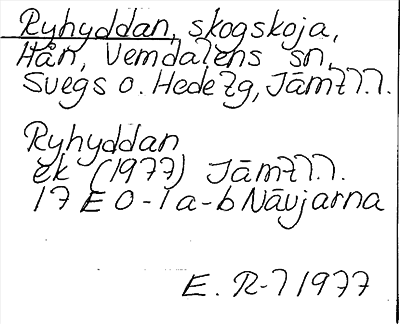 Ryhyddan, skogskoja,
Hån, Vemdalens sn,
Svegs o. Hede tg, Jämtl.l.
Ryhyddan
ek (1977) Jämtl.l.
17 E 0-1 a-b Nävjarna
E. R-l 1977